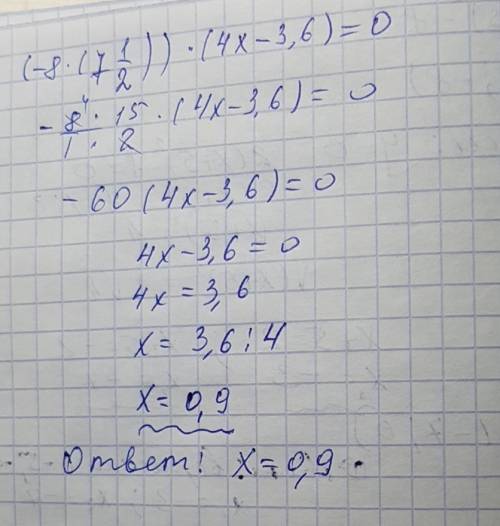 (-8·(7 1/2))·(4x-3,6)=0
-8⁴·15/1·2·(4x-3,6)=0
-60(4x-3,6)=0
4x-3,6=0
4x=3,6
x=3,6:4
x=0,9
Ответ! x=0,9.